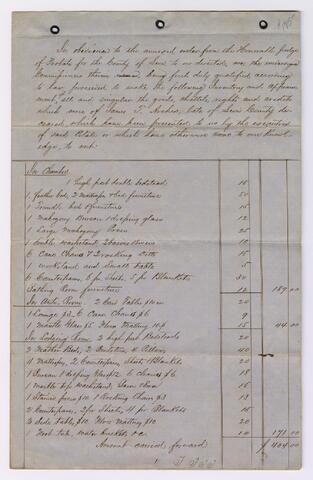 In obedience to the annexed order from the Honorable Judge
of Probate for the County of Leon to us directed, we the undersigned
Commissioners therein named, being first duly qualified according
to law, proceeded to make the following Inventory and appraise-
ment, all and singular the goods, chattels, rights and credits
which were of James late of Leon County de-
ceased, which have been presented to us by the executors
of said Estate or which have otherwise come to our knowl-
edge, to wit:
In Chamber
1 high post double bedstead 15
1 feather bed, 2 Mattrasses & bed furniture 50
1 Trundle bed & furniture 15
1 Mahogany Bureau 1 dressing glass 12
1 Large Mahogany Press 25
1 double washstand 2 Basins & Ewers 10
6 Cane Chairs & 2 rocking Chairs 15
1 workstand and Small Table 5
6 Counterpanes, 6 pr Sheets, 5 pr Blankets 30
Bathing Room furniture 12 189.00
In Ante Room. 2 Card Tables 20
1 Lounge $3. 6 Cane Chairs $6 9
1 Mantle Glass $5 Floor Matting 10$ 15 44.00
In Lodging Room 3 high post Bedsteads 20
2 Feather Beds, 2 Bolsters, 4 Pillows 40
4 Mattrasses, 2 Counterpanes, Sheets & Blankets 20
1 Bureau 1 dressing Glass $12 6 Chairs $6 18
1 Marble top Washstand, 15
1 Stained press $10 1 Rocking Chair $3 13
Counterpanes, 2 pr Sheets, 4 pr Blankets 15
2 Side Tables, $10 Floor Matting $10 20
1 Foot tub, water buckets &c. 10 171.00
Amount carried forward $ 404.00